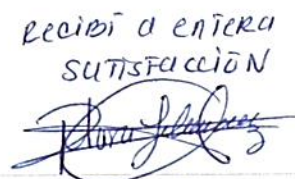 RECIBÍ A ENTERA
SATISFACCIÓN